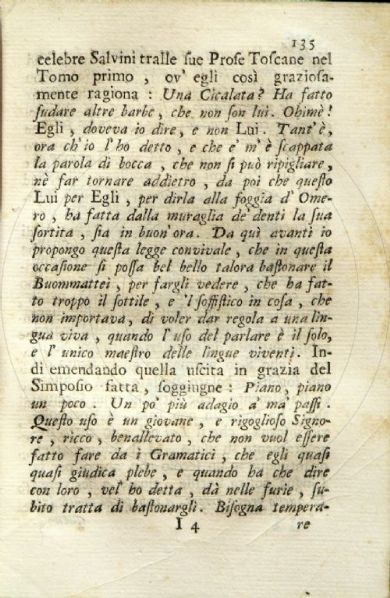 135
celebre Salvini tralle sue Prose Toscane nel
Tomo primo, ov' egli così graziosa-
mente ragiona: Una Cicalata? Ha fatto
ſudare altre barbe, che non ſon lui. Ohimè!
Egli, doveva io dire, e non Lui. Tant'è,
ora ch'io l'ho detto, e che e' m'è ſcappata
la parola di bocca, che non ſi può ripigliare,
nè far tornare addietro, da poi che queſto
Lui per Egli, per dirla alla foggia d'Ome-
ro, ha fatta dalla muraglia de' denti la ſua
ſortita, ſia in buon'ora. Da quì avanti io
propongo queſta legge convivale, che in queſta
occaſione ſi poſſa bel bello talora baſtonare il
Buommattei, per fargli vedere, che ha fat-
to troppo il ſottile, e 'l ſoffiſtico in coſa, che
non importava, di voler dar regola a una lin-
gua viva, quando l'uſo del parlare è il ſolo,
e l'unico maeſtro delle lingue viventi. In-
di emendando quella uſcita in grazia del
Simpoſio fatta, ſoggiugne: Piano, piano
un poco. Un po' più adagio a' ma' paſſi.
Queſto uſo è un giovane, e rigoglioſo Signo-
re, ricco, benallevato, che non vuol eſſere
fatto fare da i Gramatici, che egli quaſi
quaſi giudica plebe, e quando ha che dire
con loro, vel' ho detta, dà nelle furie, ſu-
bito tratta di baſtonargli. Biſogna tempera-
I 4 re